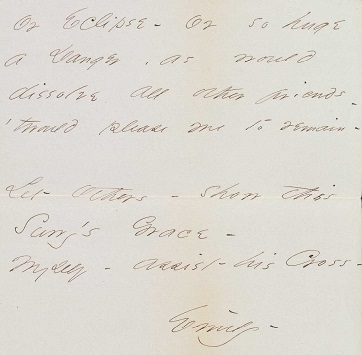 or Eclipse - Or so huge
a Danger, as would
dissolve all other friends -
'twould please me to remain -
Let others - show this
Surry's Grace -
Myself - assist his Cross -
Emily -